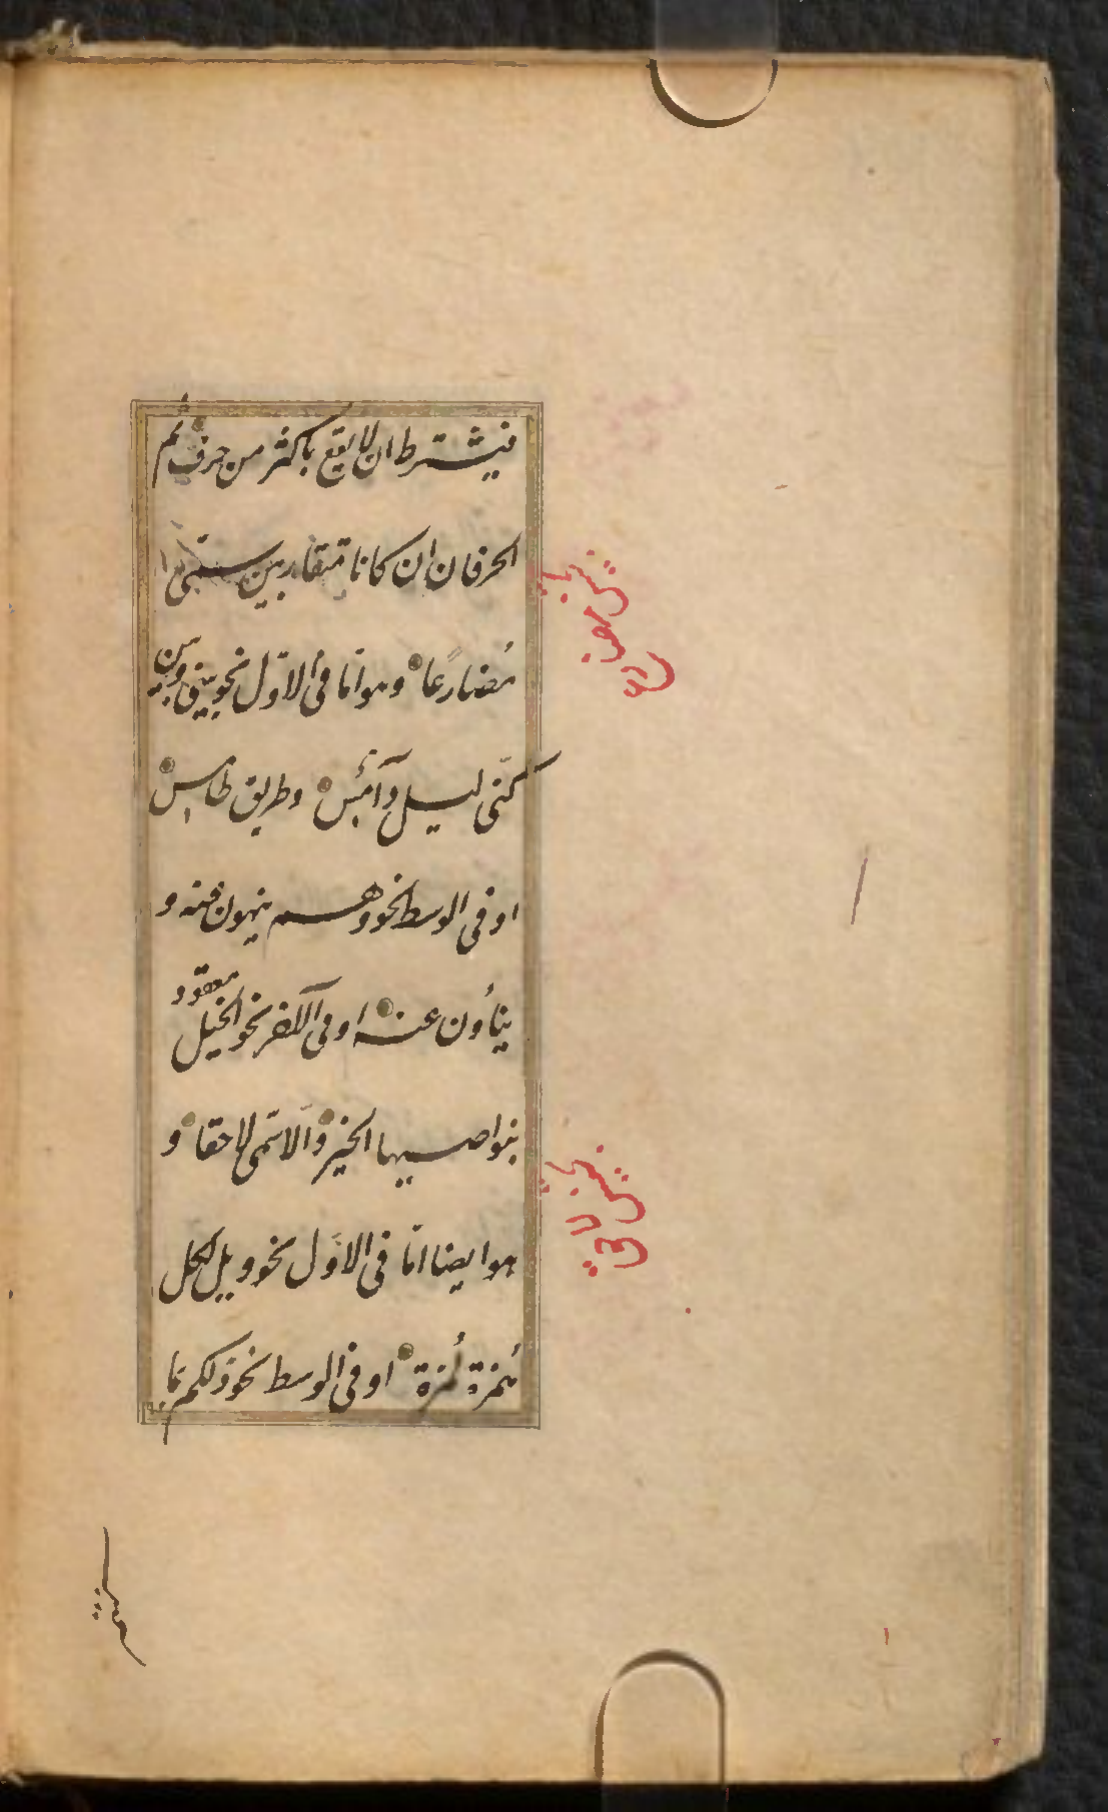 فيشترط ان لا يقع باكثر من حرف ثم
الحرفان ان كانا متقاربين سمّى
مُضارعًا وهو امّا فى الاوّل نحو بينى وبين
كنّى ليل دآمس وطريق طامس
او فى الوسط نحو وهم ينهون عنه و
ينأون عنه او فى الآخر نحو الخيل معقود
بنواصيها الخير والّا سمّى لاحقا و
هو ايضا امّا فى الاوّل نحو ويل لكل
هُمزة لُمزة او فى الوسط نحو ذلكم بما
تجنيس
مضارع
تجنيس
لاحق
كنتم